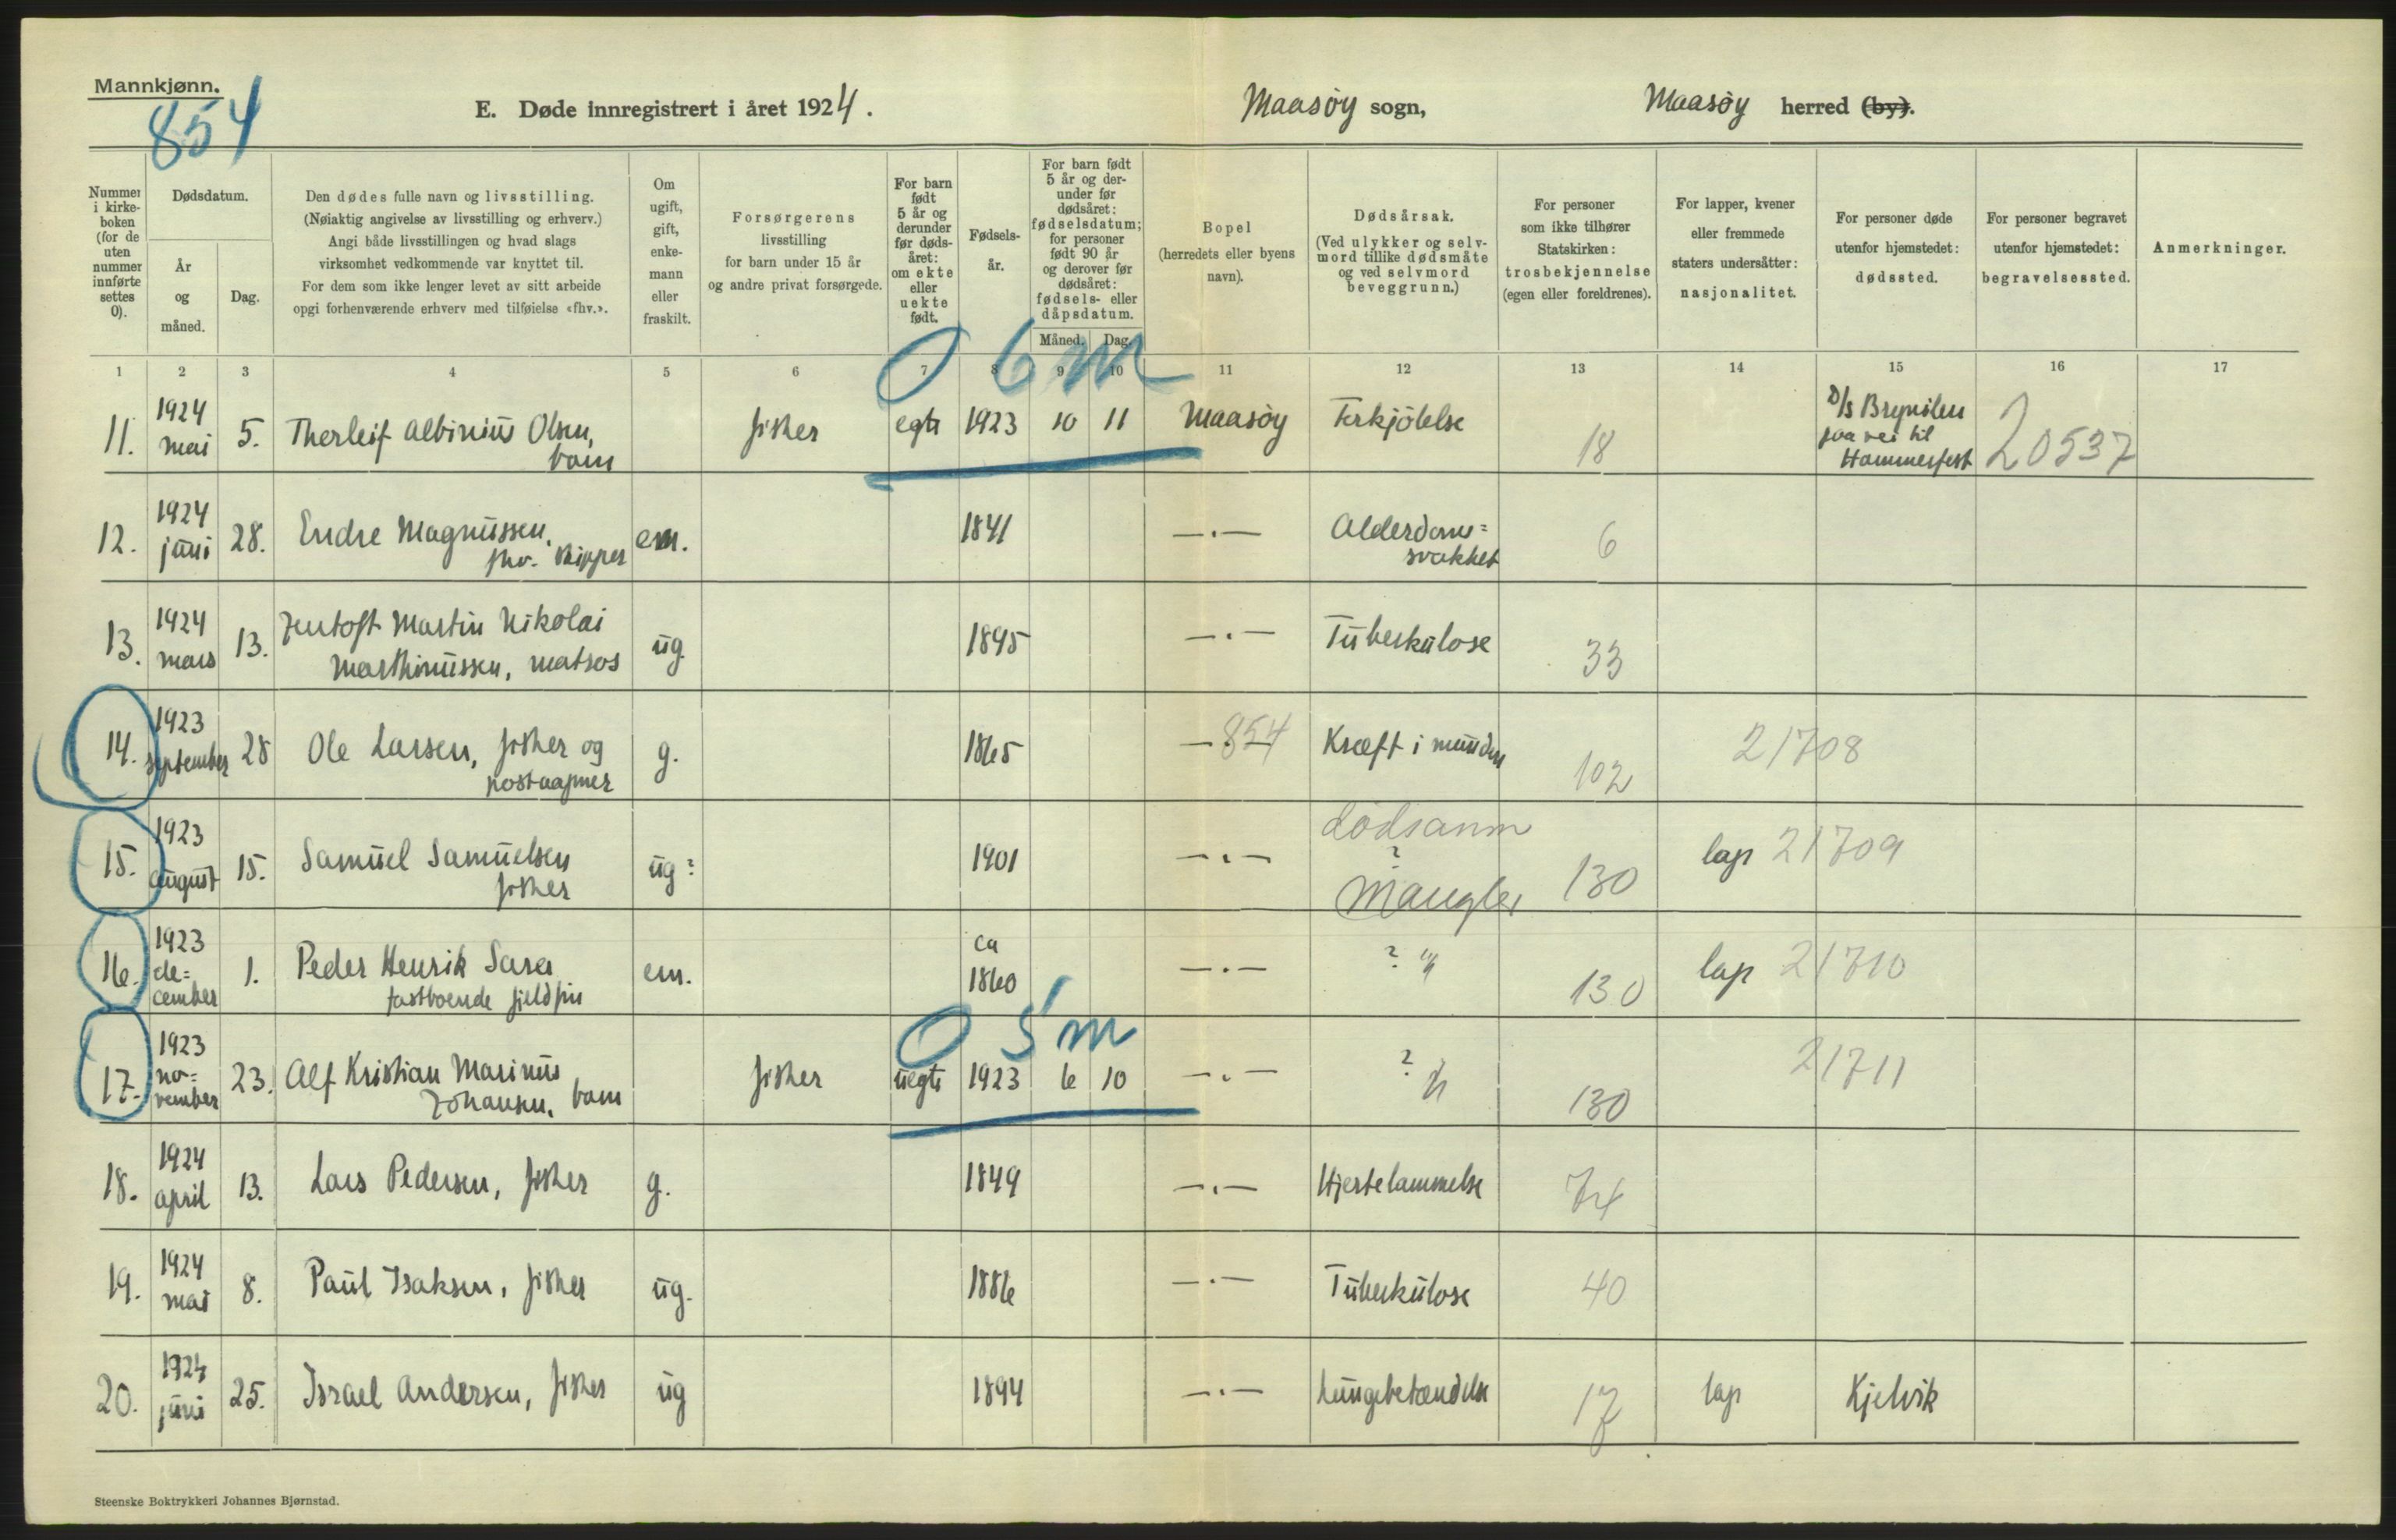 Mannkjønn.
854
E. Døde innregistrert i året 1924.
Maasøy sogn,
Maasøy herred (by).
Nummer i kirkeboken (for de uten nummer innførte settes 0).
Dødsdatum.
År og måned.
Dag.
Den dødes fulle navn og livsstilling.
(Nøiaktig angivelse av livsstilling og erhverv.)
Angi både livsstillingen og hvad slags
virksomhet vedkommende var knyttet til.
For dem som ikke lenger levet av sitt arbeide
opgi forhenværende erhverv med tilføielse «fhv.».
Om ugift, gift, enkemann eller fraskilt.
Forsørgerens
livsstilling
for barn under 15 år
og andre privat forsørgede.
For barn født 5 år og derunder før dødsåret: om ekte eller uekte født.
Fødselsår.
For barn født 5 år og derunder før dødsåret: fødselsdatum; for personer født 90 år og derover før dødsåret: fødsels- eller dåpsdatum.
Måned. Dag.
Bopel
(herredets eller byens navn).
Dødsårsak.
(Ved ulykker og selvmord tillike dødsmåte og ved selvmord beveggrunn.)
For personer
som ikke tilhører
Statskirken:
trosbekjennelse
(egen eller foreldrenes).
For lapper, kvener
eller fremmede
staters undersåtter:
nasjonalitet.
For personer døde
utenfor hjemstedet:
dødssted.
For personer begravet
utenfor hjemstedet:
begravelsessted.
Anmerkninger.
1 2 3 4 5 6 7 8 9 10 11 12 13 14 15 16 17
0 6 m
11. 1924 mai 5. Therleif Albinius Olsen, barn fisker egte 1923 10 11 Maasøy Forkjølelse 18 D/S Brynilen paa vei til Hammerfest 20537
12. 1924 juni 28. Endre Magnussen, fhv. skipper em. 1841 —·— Alderdoms= svakhet 6
13. 1924 mars 13. Jentoft Martin Nikolai Marthinussen, matros ug. 1895 —·— Tuberkulose 33
14. 1923 september 28 Ole Larsen, fisker og postaapner g. 1865 —·— 854 Kræft i munden 102 21708
15. 1923 august 15. Samuel Samuelsen fisker ug? 1901 —·— dødsanm ? mangler 130 lap 21709
16. 1923 de= cember 1. Peder Henrik Sara fastboende fjeldfin em. ca 1860 —·— ? " 130 lap 21710
0 5 m
17. 1923 no= vember 23. Alf Kristian Marinus Johansen, barn fisker uegte 1923 6 10 —·— ? 130 21711
18. 1924 april 13. Lars Pedersen, fisker g. 1849 —·— Hjertelammelse 74
19. 1924 mai 8. Paul Isaksen, fisker ug. 1886 —·— Tuberkulose 40
20. 1924 juni 25. Israel Andersen, fisker ug 1894 —·— Lungebetændelse 17 lap Kjelvik
Steenske Boktrykkeri Johannes Bjørnstad.